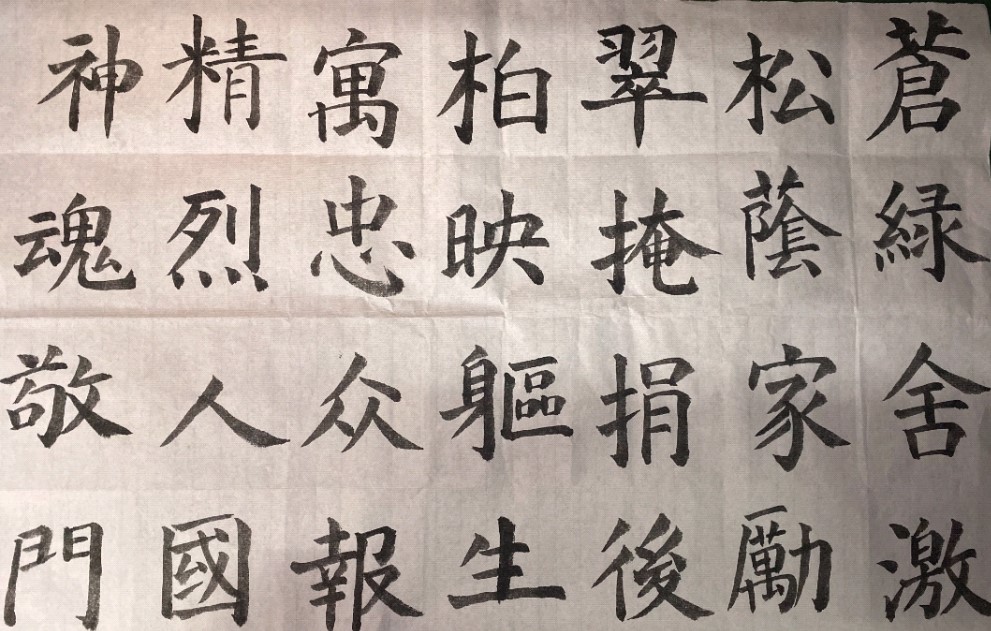 蒼松翠柏寓精神
緑蔭掩映忠烈魂
舍家捐軀众人敬
激勵後生報國門